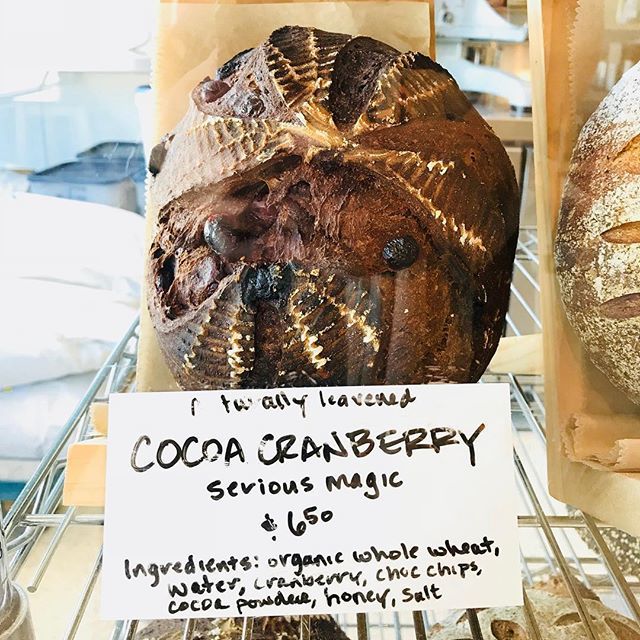 naturally leavened
COCOA CRANBERRY
serious magic
$650
Ingredients: organic whole wheat,
water, cranberry, choc chips,
cocoa powder, honey, salt